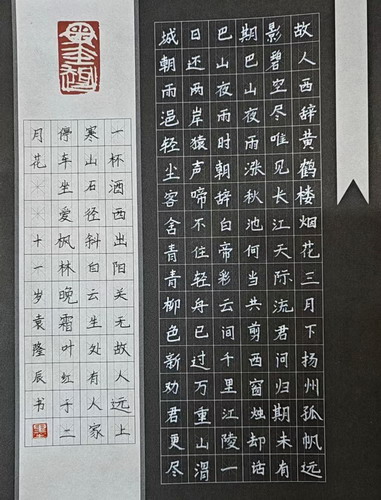 故人西辞黄鹤楼烟花三月下扬州孤帆远
影碧空尽唯见长江天际流君问归期未有
期巴山夜雨涨秋池何当共剪西窗烛却话
巴山夜雨时朝辞白帝彩云间千里江陵一
日还两岸猿声啼不住轻舟已过万重山渭
城朝雨浥轻尘客舍青青柳色新劝君更尽
一杯酒西出阳关无故人远上
寒山石径斜白云生处有人家
停车坐爱枫林晚霜叶红于二
月花 十一岁袁隆辰书